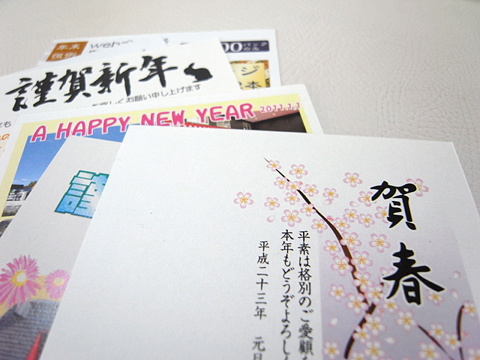 年末
web
謹賀新年
くお願い申し上げます
A HAPPY NEW YEAR
2011.1.1
謹
賀春
平素は格別のご愛顧
本年もどうぞよろし
平成二十三年 元旦